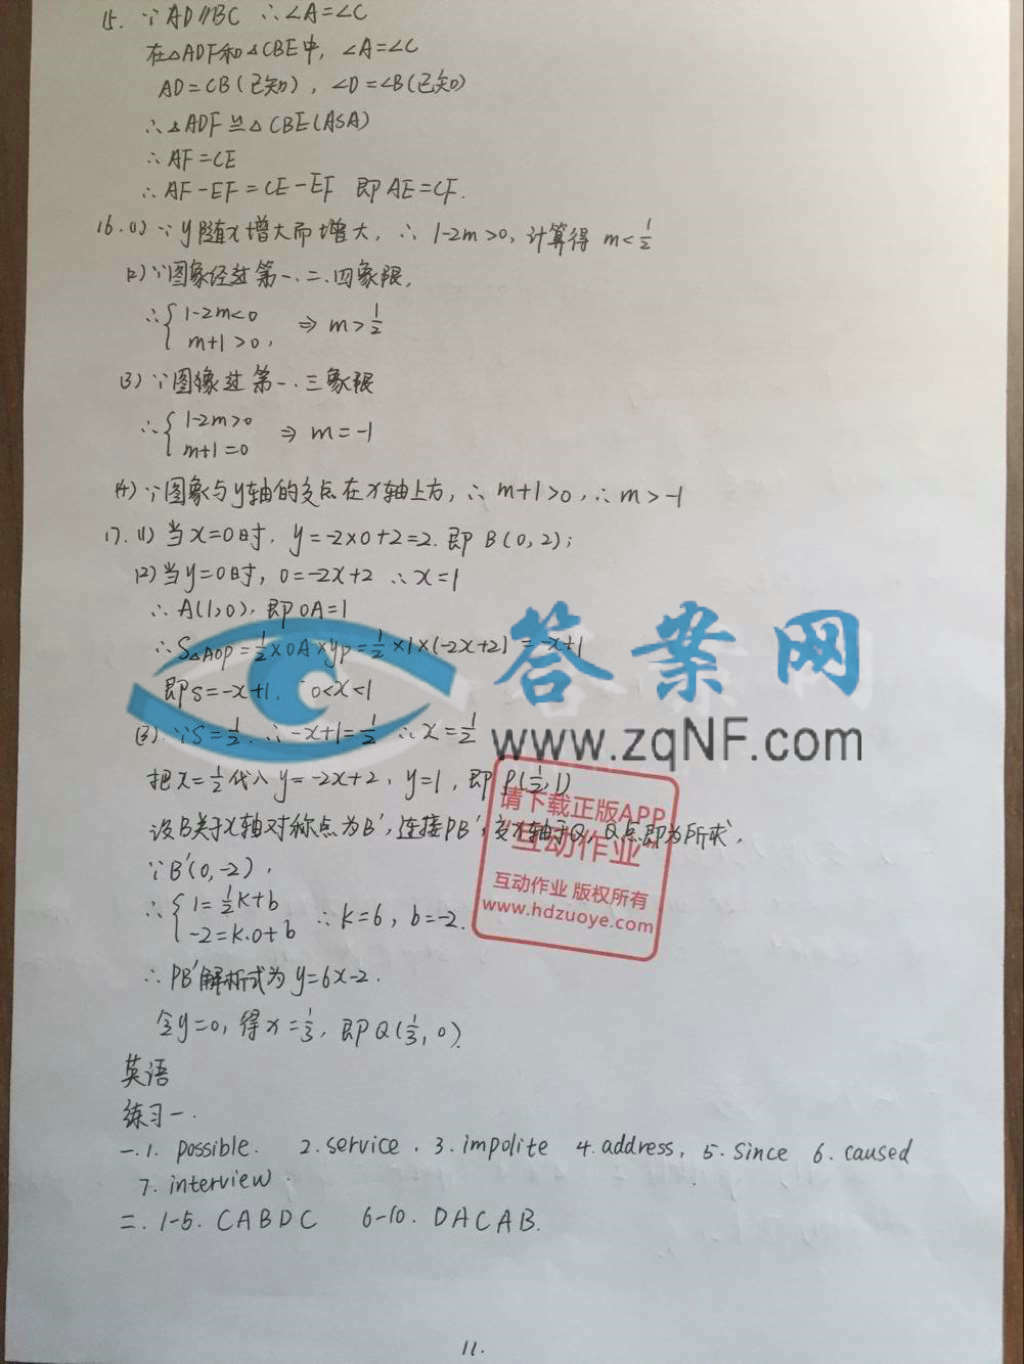 15. ∵ AD∥BC ∴∠A=∠C
在△ADF和△CBE中, ∠A=∠C
AD=CB(已知), ∠D=∠B(已知)
∴△ADF≌△CBE(ASA)
∴AF=CE
∴AF-EF=CE-EF 即AE=CF.
16.(1)∵y随x增大而增大, ∴ 1-2m>0, 计算得 m<1/2
(2)∵图象经过第一.二.四象限,
∴{1-2m<0
m+1>0, ⇒ m>1/2
(3)∵图像过第一.三象限
∴{1-2m>0
m+1=0 ⇒ m=-1
(4)∵图象与y轴的交点在x轴上方, ∴m+1>0, ∴m>-1
17.(1)当x=0时, y=-2×0+2=2. 即B(0,2);
(2)当y=0时, 0=-2x+2 ∴x=1
∴A(1,0), 即OA=1
∴S△AOP=1/2×OA×yP=1/2×1×(-2x+2)=-x+1
即S=-x+1. 0<x<1
(3).∵S=1/2. ∴-x+1=1/2 ∴x=1/2
把x=1/2代入y=-2x+2, y=1, 即P(1/2,1)
设B关于x轴对称点为B′, 连接PB′, 交x轴于Q, Q点即为所求,
∵B′(0,-2),
∴{1=1/2K+b
-2=K.0+b ∴K=6, b=-2.
∴PB′解析式为y=6x-2.
令y=0, 得x=1/3, 即Q(1/3,0).
英语
练习一.
一.1. possible. 2. service. 3. impolite 4. address, 5. Since 6. caused
7. interview.
二. 1-5. CABDC 6-10. DACAB.
11.
答案网
www.zqNF.com
请下载正版APP
互动作业
互动作业 版权所有
www.hdzuoye.com